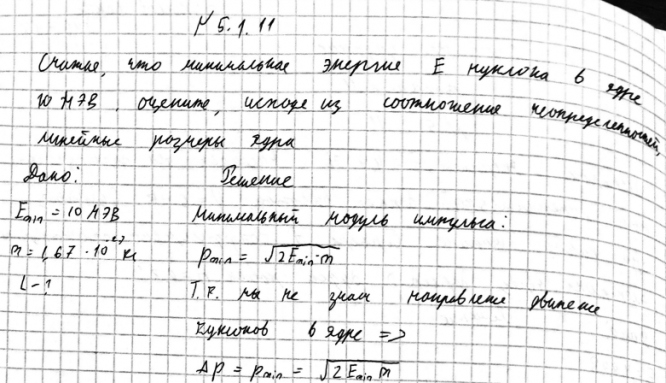 № 5.1.11
Считая, что минимальная энергия E нуклона в ядре
10 МЭВ, оцените, исходя из соотношения неопределенностей,
линейные размеры ядра
Дано: Решение
E_min = 10 МЭВ Минимальный модуль импульса:
m = 1,67 · 10^-27 кг p_min = √(2E_min·m)
L - ? Т.к. мы не знаем направление движение
нуклонов в ядре =>
Δp = p_min = √(2E_min m)